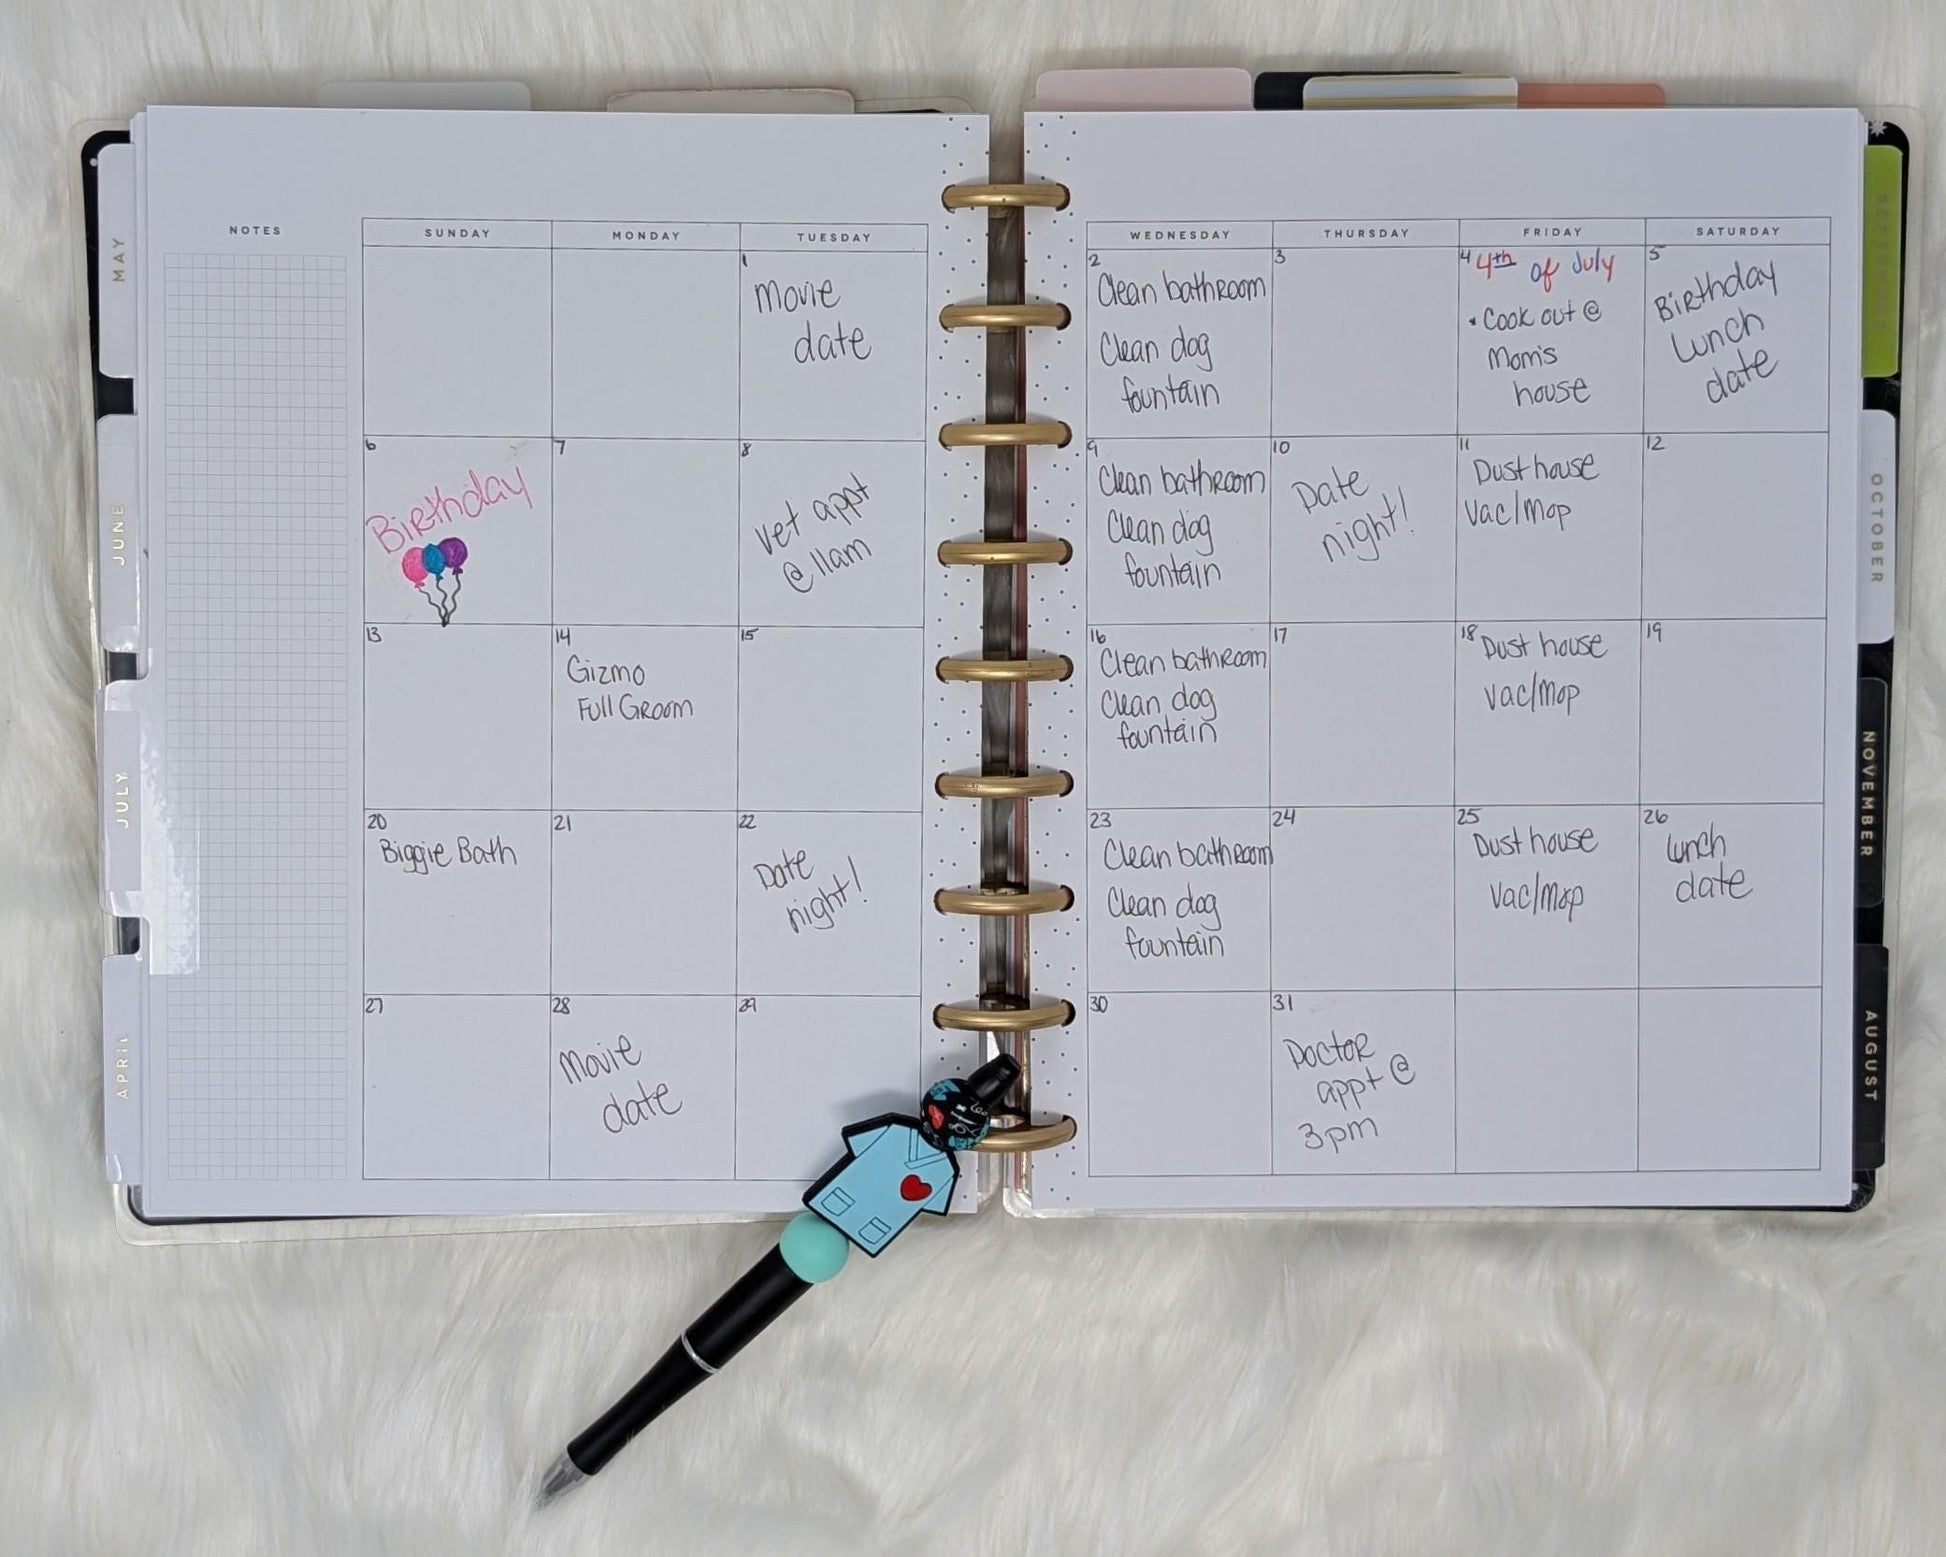 NOTES
SUNDAY
MONDAY
TUESDAY
WEDNESDAY
THURSDAY
FRIDAY
SATURDAY
1
Movie
date
2
Clean bathroom
Clean dog
fountain
3
4
4th of July
• Cook out @
Mom's
house
5
Birthday
Lunch
date
6
Birthday
7
8
Vet appt
@ 11am
9
Clean bathroom
Clean dog
fountain
10
Date
night!
11
Dust house
Vac/Mop
12
13
14
Gizmo
Full Groom
15
16
Clean bathroom
Clean dog
fountain
17
18
Dust house
Vac/Mop
19
20
Biggie Bath
21
22
Date
night!
23
Clean bathroom
Clean dog
fountain
24
25
Dust house
Vac/Mop
26
Lunch
date
27
28
Movie
date
29
30
31
Doctor
appt @
3pm
MAY
JUNE
JULY
APRIL
SEPTEMBER
OCTOBER
NOVEMBER
AUGUST